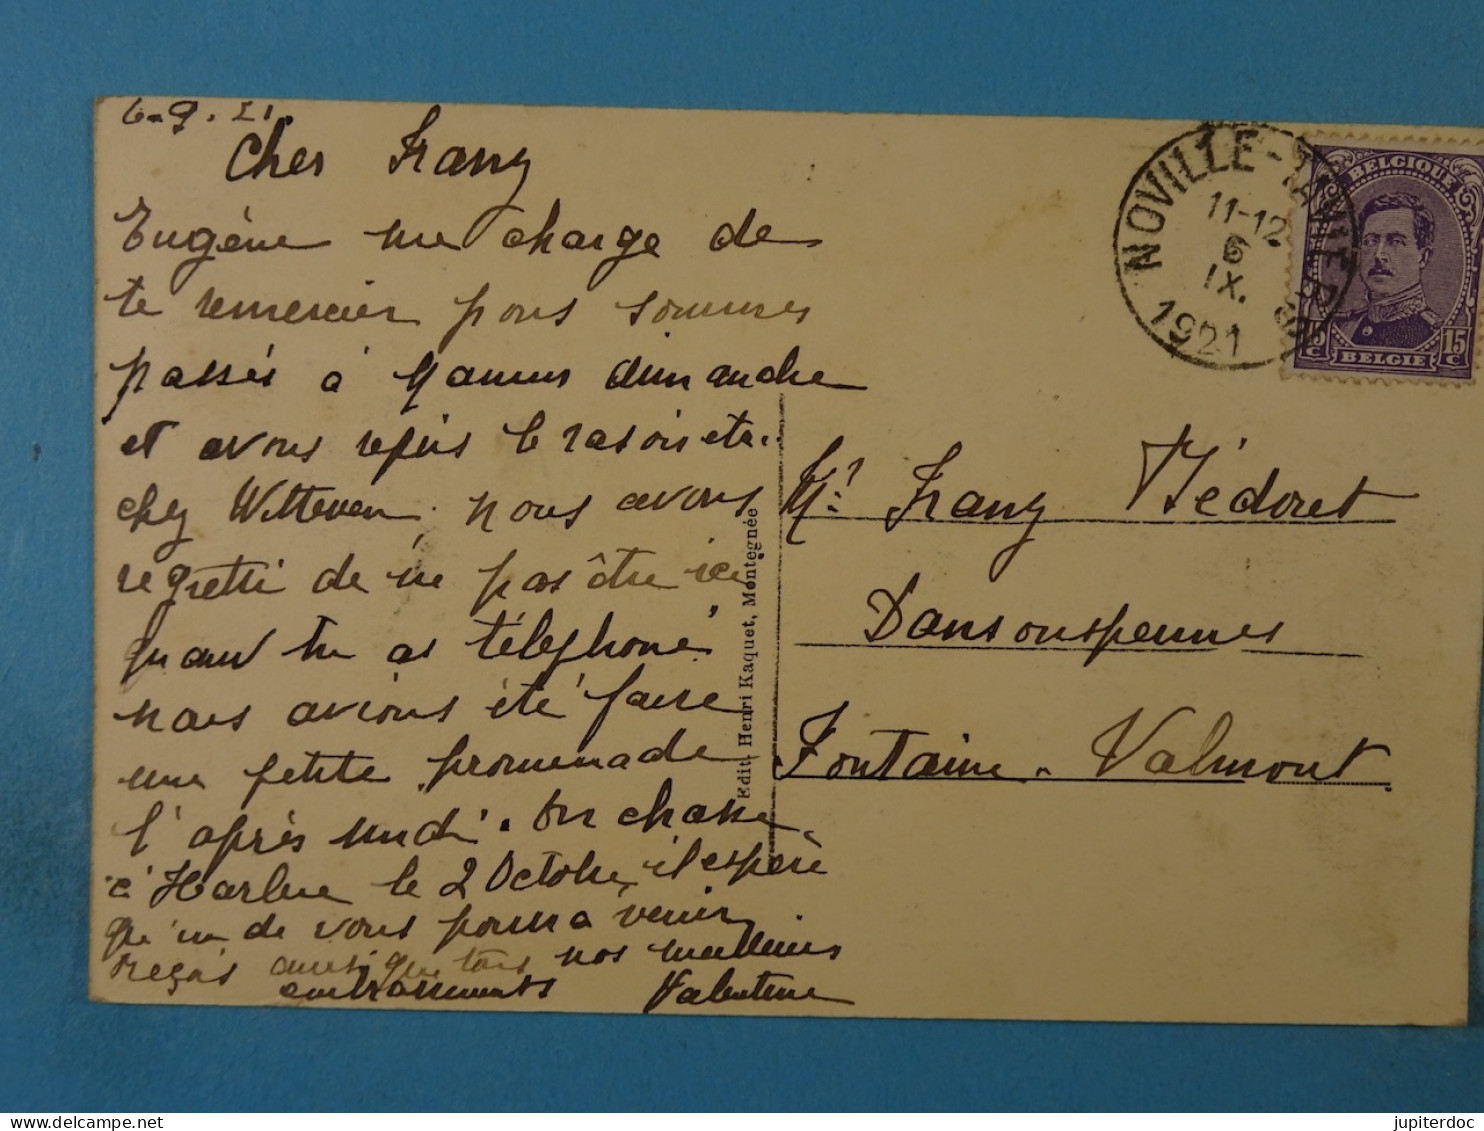 6-9.21
Cher Franz
Eugène me charge de
te remercier nous sommes
passés à Namur dimanche
et avons repris le rasoir etc.
chez Witteven, nous avons
regretté de ne pas être ici
quand tu as téléphoné
nous avions été faire
une petite promenade
l'après midi. On chasse
à Harlue le 2 Octobre il espère
qu'un de vous pourra venir
reçois ainsi que tous nos meilleurs
embrassements Valentine
Edit. Henri Kaquet, Montegnée
NOVILLE-TAVIERS
11-12
6
IX.
1921
BELGIQUE
15 C 15 C
BELGIE
Mr. Franz Médoret
Dansouspennes
Fontaine-Valmont
jupiterdoc